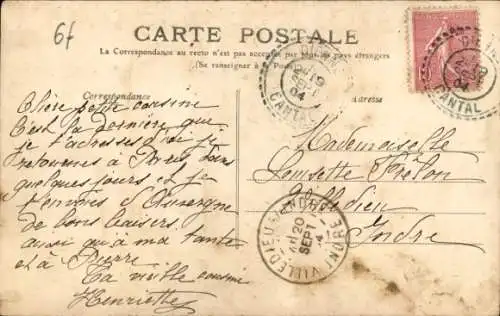 6f
CARTE POSTALE
La Correspondance au recto n'est pas acceptée par tous les pays étrangers
(Se renseigner à la Poste)
Correspondance
Adresse
Chère petite cousine
C'est la dernière que
je t'adresse d'ici je
retournes à Paris dans
quelques jours et je
t'envoies d'Auvergne
de bons baisers
aussi qu'a ma tante
et à Pierre
Ta vieille cousine
Henriette
Mademoiselle
Lousette
Villedieu
Indre
CANTAL
CANTAL
VILLEDIEU INDRE
20
SEPT